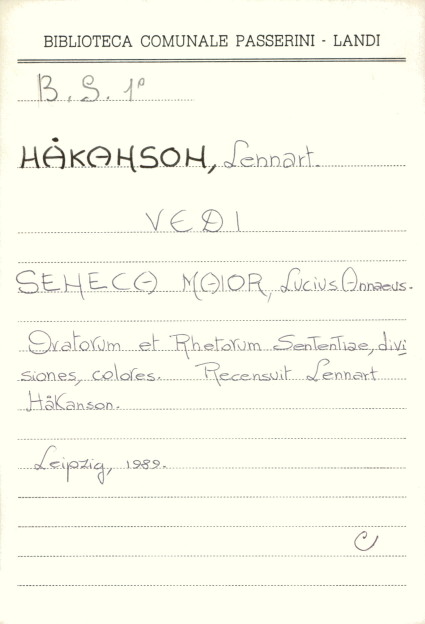 BIBLIOTECA COMUNALE PASSERINI - LANDI
B. S. 1º
HÅKANSON, Lennart.
VEDI
SENECA MAIOR, Lucius Annaeus.
Oratorum et Rhetorum Sententiae, divi
siones, colores. Recensuit Lennart
HåKanson.
Leipzig, 1989.
C